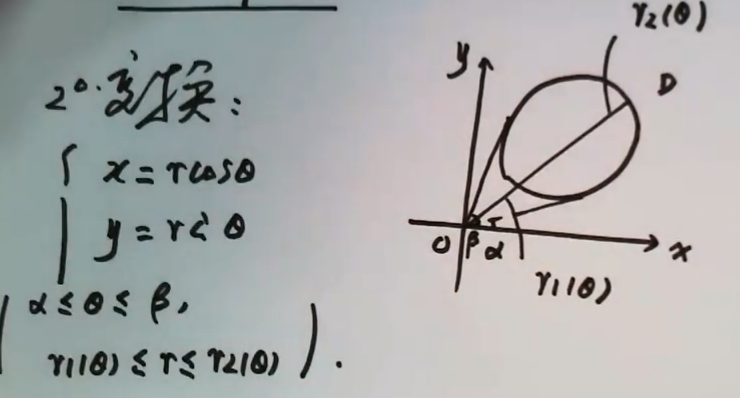 2°.变换:
x = rcosθ
y = r< θ
α ≤ θ ≤ β,
r1(θ) ≤ r ≤ r2(θ)).
r2(θ)
y
D
O β α
x
r1(θ)